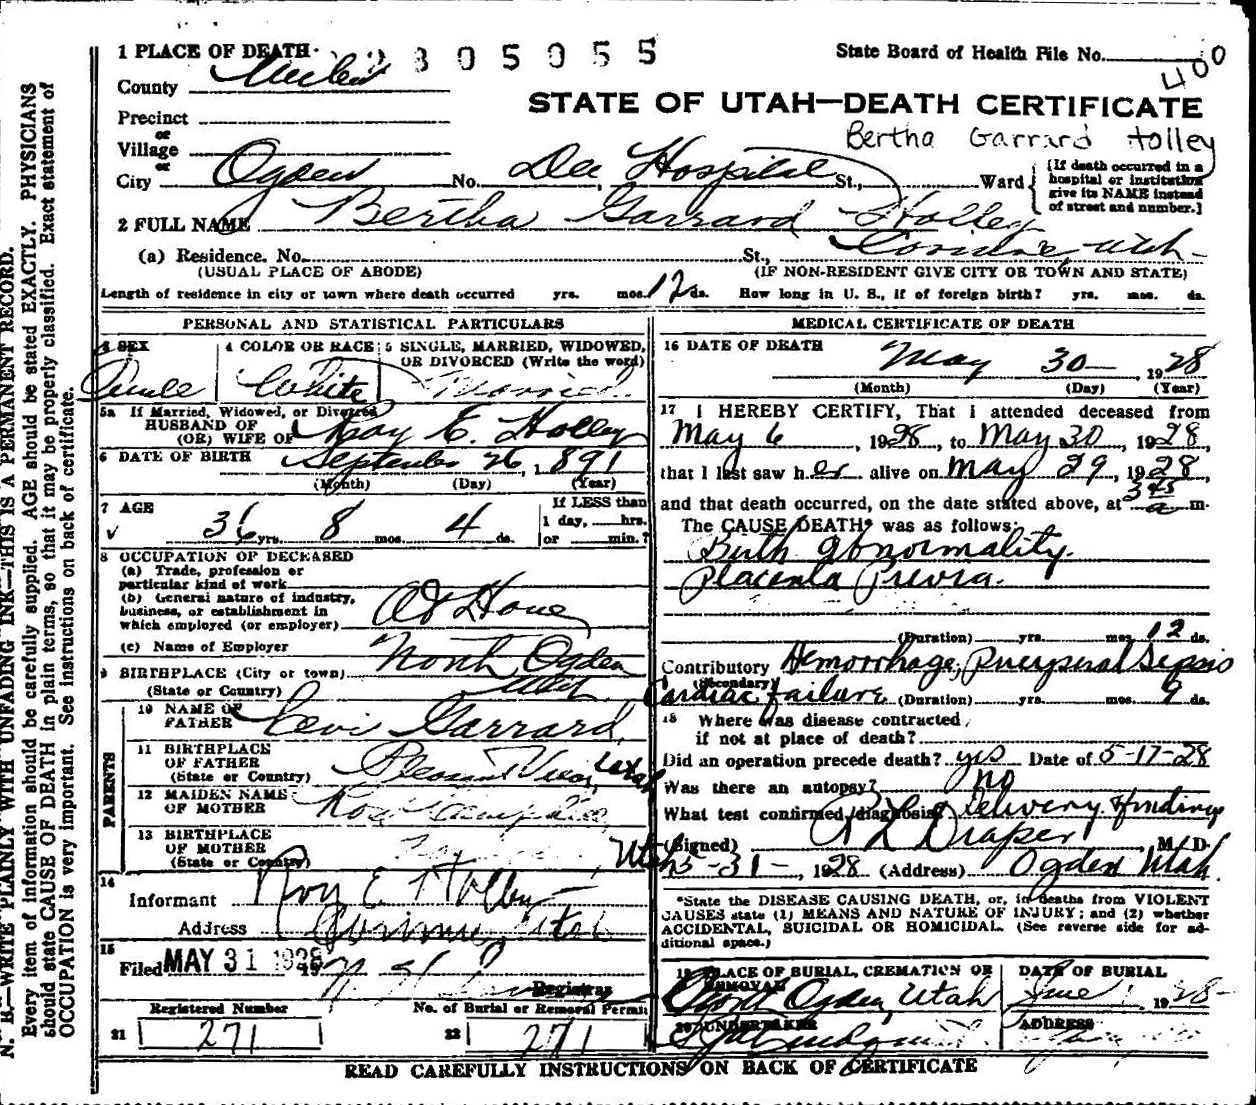 1 PLACE OF DEATH 2805055 State Board of Health File No. 400
County Weber
STATE OF UTAH—DEATH CERTIFICATE
Precinct
or
Bertha Garrard Holley
Village
or
City Ogden No. Dee Hospital St., Ward
[If death occurred in a hospital or institution give its NAME instead of street and number.]
2 FULL NAME Bertha Garrard Holley
(a) Residence. No. St., Corinne, Utah
(USUAL PLACE OF ABODE) (IF NON-RESIDENT GIVE CITY OR TOWN AND STATE)
Length of residence in city or town where death occurred yrs. mos. 12 ds. How long in U. S., if of foreign birth? yrs. mos. ds.
PERSONAL AND STATISTICAL PARTICULARS
3 SEX
4 COLOR OR RACE
5 SINGLE, MARRIED, WIDOWED, OR DIVORCED (Write the word)
White Married
5a If Married, Widowed, or Divorced
HUSBAND OF
(OR) WIFE OF Roy E. Holley
6 DATE OF BIRTH September 26, 1891
(Month) (Day) (Year)
7 AGE
36 yrs. 8 mos. 4 ds.
If LESS than
1 day, hrs.
or min.?
8 OCCUPATION OF DECEASED
(a) Trade, profession or
particular kind of work
(b) General nature of industry,
business, or establishment in
which employed (or employer) At Home
(c) Name of Employer
9 BIRTHPLACE (City or town) North Ogden
(State or Country) Utah
PARENTS
10 NAME OF
FATHER Levi Garrard
11 BIRTHPLACE
OF FATHER
(State or Country) Pleasant View, Utah
12 MAIDEN NAME
OF MOTHER
13 BIRTHPLACE
OF MOTHER
(State or Country) Utah
14
Informant Roy E. Holley
Address Corinne, Utah
15
Filed MAY 31 1928
Registrar
Registered Number No. of Burial or Removal Permit
21 271 22 271
MEDICAL CERTIFICATE OF DEATH
16 DATE OF DEATH
May 30 1928
(Month) (Day) (Year)
17 I HEREBY CERTIFY, That I attended deceased from
May 6, 1928, to May 30, 1928
that I last saw her alive on May 29, 1928,
and that death occurred, on the date stated above, at 345 a m.
The CAUSE DEATH* was as follows:
Birth abnormality.
Placenta Previa.
(Duration) yrs. mos. 12 ds.
Contributory Hemorrhage, puerperal sepsis
(Secondary)
Cardiac failure (Duration) yrs. mos. 9 ds.
18 Where was disease contracted
if not at place of death?
Did an operation precede death? yes Date of 5-17-28
Was there an autopsy? no
What test confirmed diagnosis? Delivery findings
(Signed) R L Draper M. D.
5-31-, 1928 (Address) Ogden Utah.
*State the DISEASE CAUSING DEATH, or, in deaths from VIOLENT
CAUSES state (1) MEANS AND NATURE OF INJURY; and (2) whether
ACCIDENTAL, SUICIDAL OR HOMICIDAL. (See reverse side for ad-
ditional space.)
19 PLACE OF BURIAL, CREMATION OR REMOVAL
North Ogden, Utah
DATE OF BURIAL
June 1 1928
20 UNDERTAKER
ADDRESS
READ CAREFULLY INSTRUCTIONS ON BACK OF CERTIFICATE
N. B.—WRITE PLAINLY WITH UNFADING INK—THIS IS A PERMANENT RECORD.
Every item of information should be carefully supplied. AGE should be stated EXACTLY. PHYSICIANS
should state CAUSE OF DEATH in plain terms, so that it may be properly classified. Exact statement of
OCCUPATION is very important. See instructions on back of certificate.